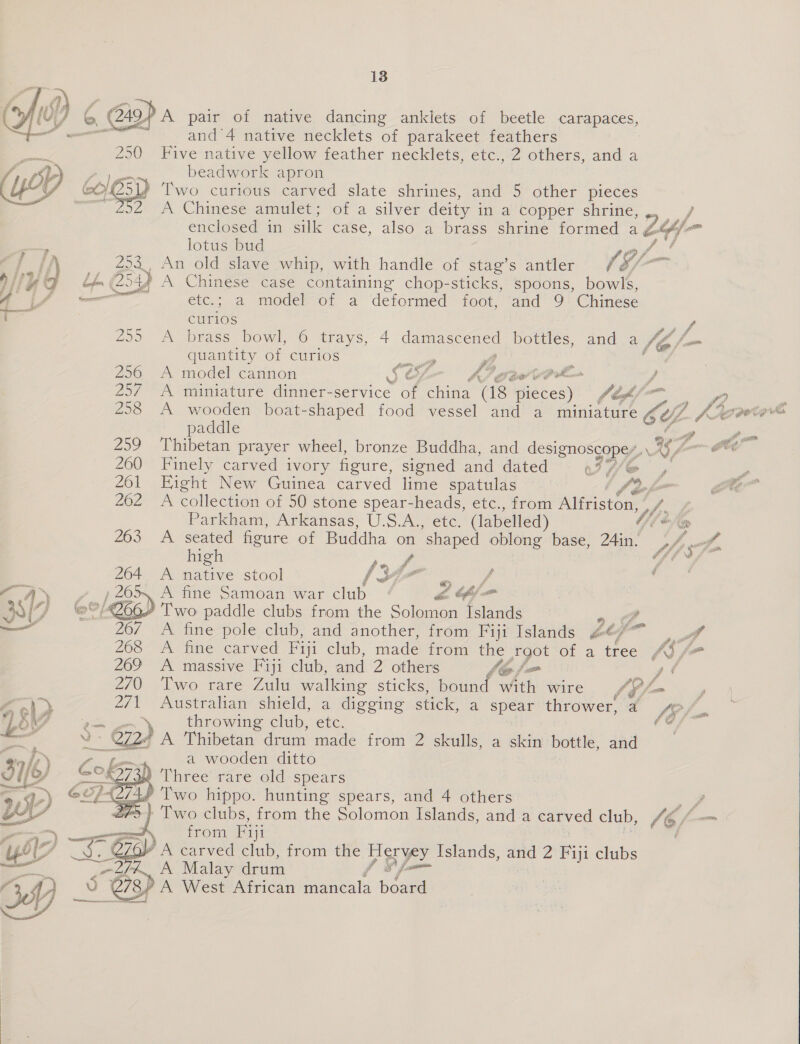 13
249 A pair of native dancing anklets of beetle carapaces,
and 4 native necklets of parakeet feathers
250 Five native yellow feather necklets, etc., 2 others, and a
beadwork apron
251 Two curious carved slate shrines, and 5 other pieces
252 A Chinese amulet; of a silver deity in a copper shrine,
enclosed in silk case, also a brass shrine formed a
lotus bud
253 An old slave whip, with handle of stag's antler 18/-
254 A Chinese case containing chop-sticks, spoons, bowls,
etc.; a model of a deformed foot, and 9 Chinese
curios
255 A brass bowl, 6 trays, 4 damascened bottles, and a
quantity of curios
256 A model cannon
257 A miniature dinner-service of china (18 pieces)
258 A wooden boat-shaped food vessel and a miniature
paddle
259 Thibetan prayer wheel, bronze Buddha, and designoscope
260 Finely carved ivory figure, signed and dated
261 Eight New Guinea carved lime spatulas
262 A collection of 50 stone spear-heads, etc., from Alfriston,
Parkham, Arkansas, U.S.A., etc. (labelled)
263 A seated figure of Buddha on shaped oblong base, 24in.
high
264 A native stool
265 A fine Samoan war club
266 Two paddle clubs from the Solomon Islands
267 A fine pole club, and another, from Fiji Islands
268 A fine carved Fiji club, made from the root of a tree
269 A massive Fiji club, and 2 others
270 Two rare Zulu walking sticks, bound with wire
271 Australian shield, a digging stick, a spear thrower, a
throwing club, etc.
272 A Thibetan drum made from 2 skulls, a skin bottle, and
a wooden ditto
273 Three rare old spears
274 Two hippo. hunting spears, and 4 others
275 Two clubs, from the Solomon Islands, and a carved club,
from Fiji
276 A carved club, from the Hervey Islands, and 2 Fiji clubs
277 A Malay drum
278 A West African mancala board